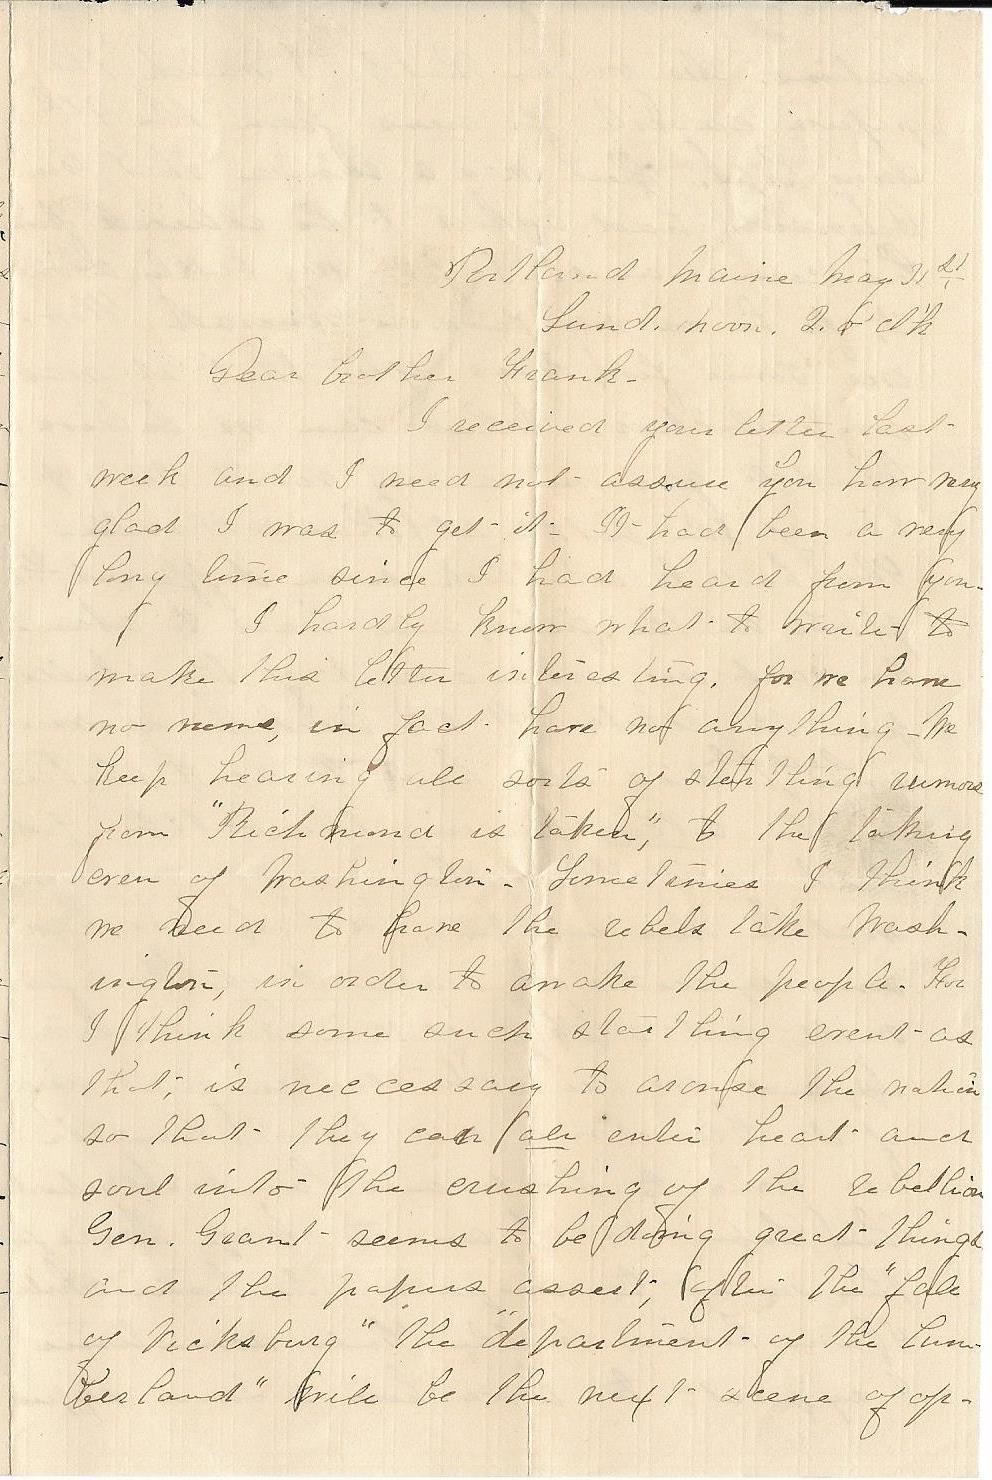 Portland Maine May 31st
Sund. noon. 2. o'clk
Dear brother Frank-
I received your letter last
week and I need not assure you how very
glad I was to get it- It had been a very
long time since I had heard from you-
I hardly know what to write to
make this letter interesting, for we have
no news, in fact have not anything - We
keep hearing all sorts of startling rumors
from "Richmond is taken", to the taking
even of Washington - Sometimes I think
we need to have the rebels take Wash-
ington, in order to awake the people. For
I think some such startling event as
that, is neccessary to arouse the nation
so that they can all enter heart and
soul into the crushing of the rebellion
Gen. Grant seems to be doing great things
and the papers assert, after the "fall
of Vicksburg" the "department of the Cum-
berland" will be the next scene of op-